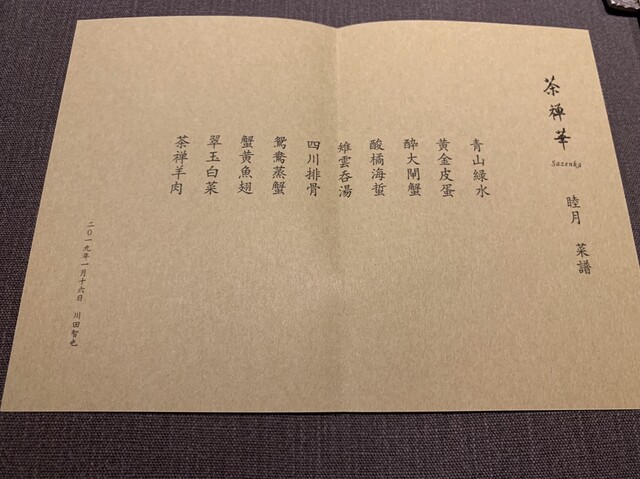 茶禅華
Sazenka
睦月 菜譜
青山緑水
黄金皮蛋
酔大閘蟹
酸橘海蜇
雉雲呑湯
四川排骨
鴛鴦蒸蟹
蟹黄魚翅
翠玉白菜
茶禅羊肉
二〇一九年一月十六日 川田智也